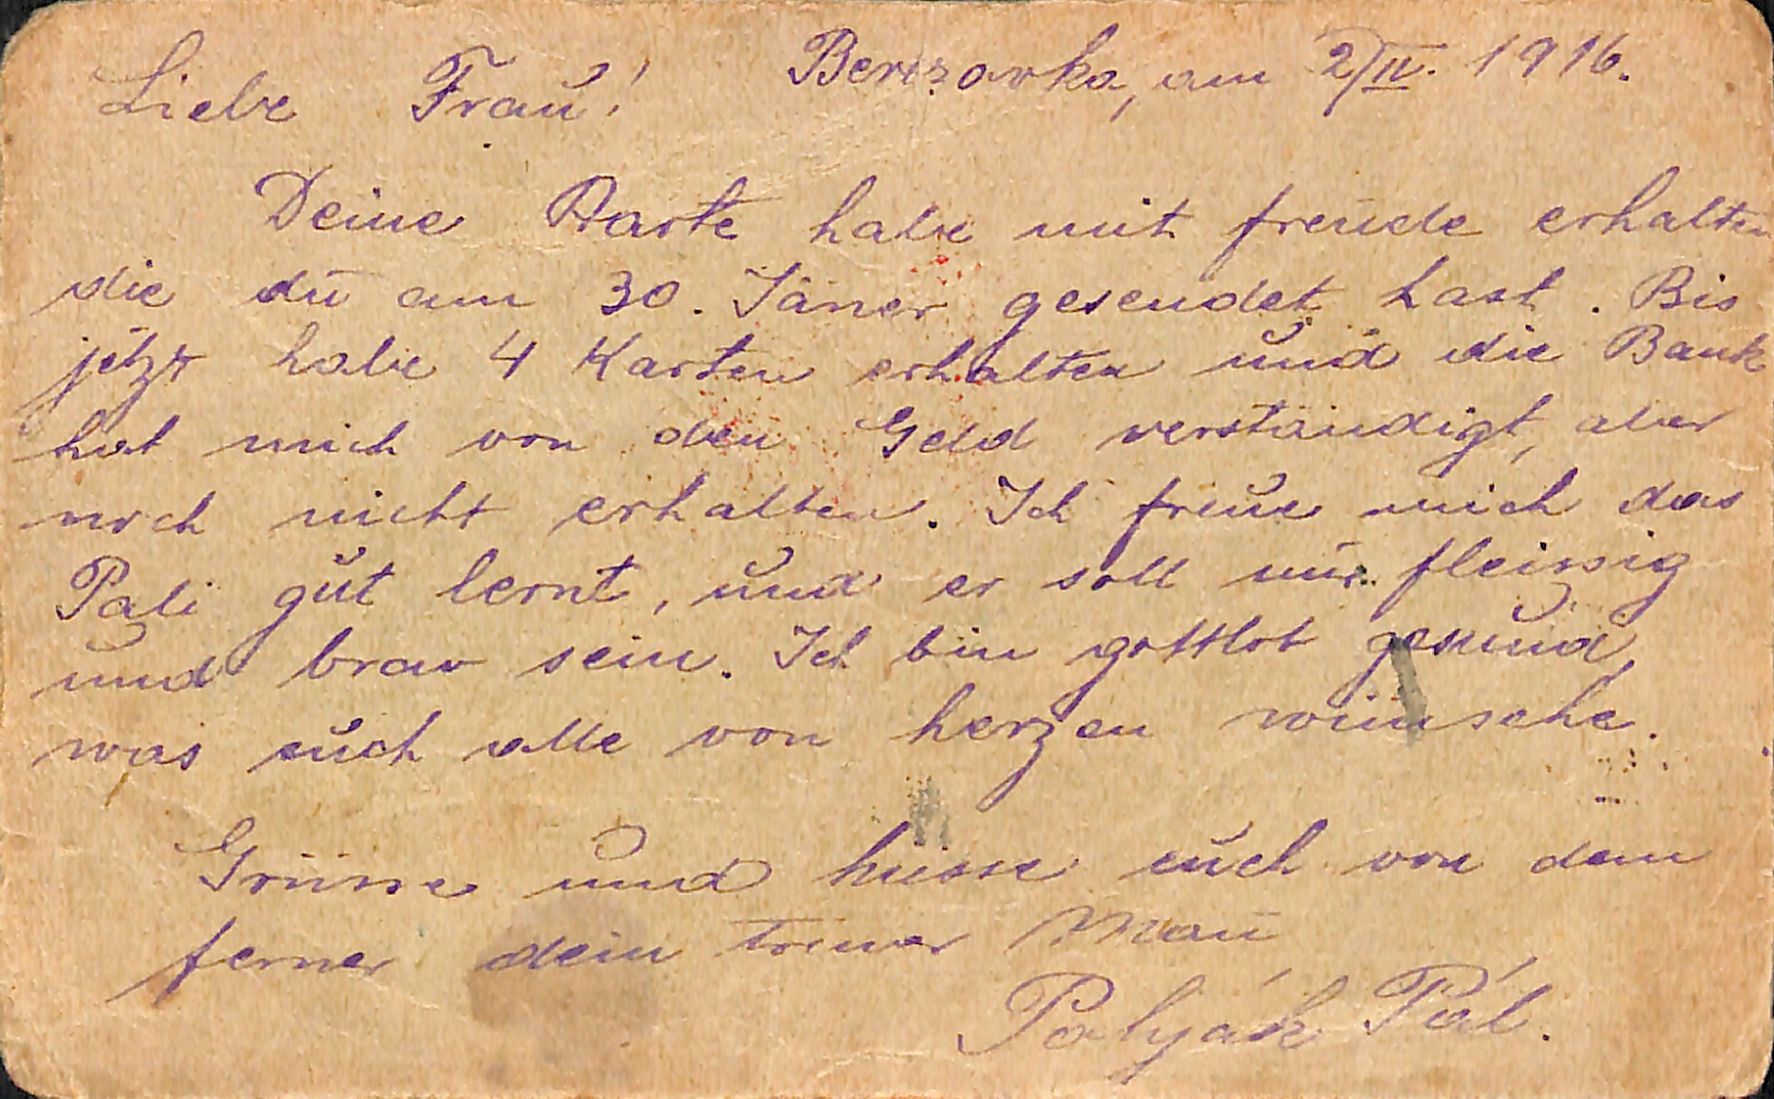 Liebe Frau! Beresowka, am 2/IV. 1916.
Deine Karte habe mit freude erhalten
die du am 30. Jäner gesendet hast. Bis
jetzt habe 4 Karten erhalten und die Bank
hat mich von den Geld verständigt, aber
noch nicht erhalten. Ich freue mich das
Pali gut lernt, und er soll nur fleissig
und brav sein. Ich bin gottlob gesund,
was euch alle von herzen wünsche.
Grüsse und küsse euch von dem
ferner dein treuer Man
Polyák Pál.